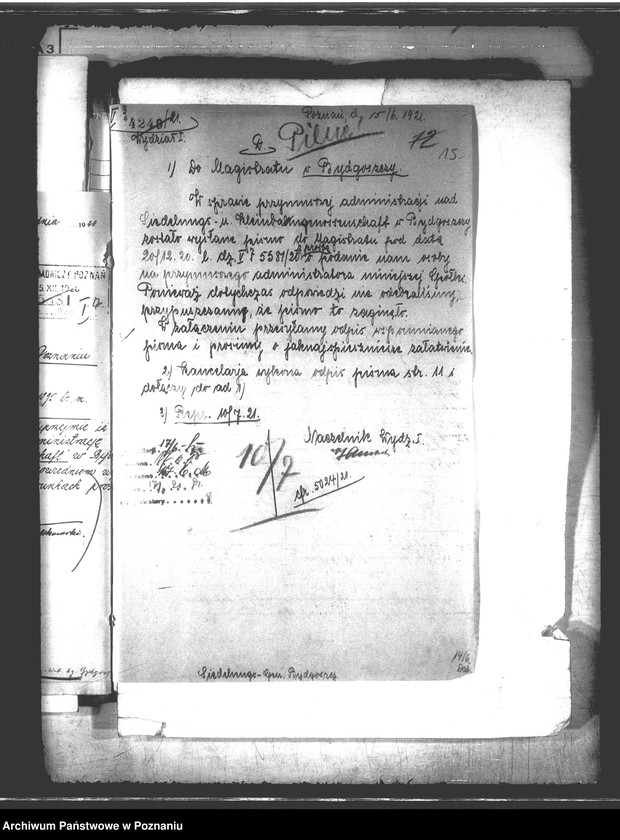 3
II 4240/21.
Wydział I.
Poznań, d. 15/6. 1921.
Pilne!
12
15.
1) Do Magistratu w Bydgoszczy.
W sprawie przymusowej administracji nad
Siedelungs- u. Kleinbahngenossenschaft w Bydgoszczy
zostało wysłane pismo do Magistratu pod datą
20/12. 20. l. dz. 5581/20 z prośbą o podanie nam osoby
na przymusowego administratora niniejszej Spółki.
Ponieważ dotychczas odpowiedzi nie odebraliśmy,
przypuszczamy, że pismo to zaginęło.
W załączeniu przesyłamy odpis wspomnianego
pisma i prosimy o jaknajspieszniejsze załatwienie.
2) Kancelarja wykona odpis pisma str. 11 i
dołączy do ad 1)
3) Przpr. 10/7. 21.
Naczelnik Wydz. I.
10/7
5024/21.
14/6
Siedelungs-Gen. Bydgoszcz
MONICZY POZNAŃ
XII 1920
Poznaniu
Archiwum Państwowe w Poznaniu